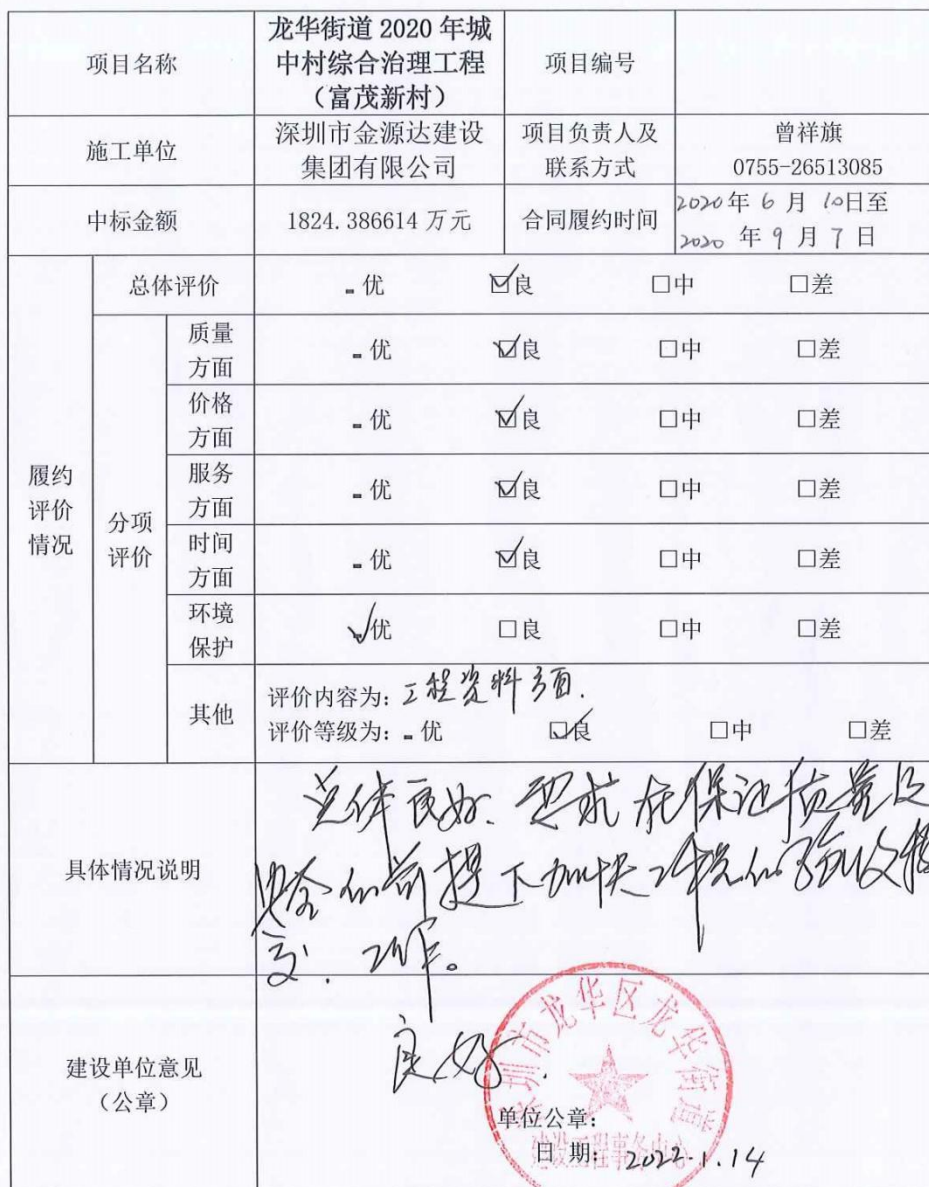 项目名称
龙华街道 2020 年城
中村综合治理工程
（富茂新村）
项目编号
施工单位
深圳市金源达建设
集团有限公司
项目负责人及
联系方式
曾祥旗
0755-26513085
中标金额
1824.386614 万元
合同履约时间
2020年 6 月 10日至
2020 年 9 月 7 日
履约
评价
情况
总体评价
优 ☑良 □中 □差
分项
评价
质量
方面
优 ☑良 □中 □差
价格
方面
优 ☑良 □中 □差
服务
方面
优 ☑良 □中 □差
时间
方面
优 ☑良 □中 □差
环境
保护
√优 □良 □中 □差
其他
评价内容为：工程资料方面.
评价等级为：优 ☑良 □中 □差
具体情况说明
总体良好. 要求在保证质量及
安全的前提下加快工程的验收移
交. 工作。
建设单位意见
（公章）
良好.
深圳市龙华区龙华街道
建设工程事务中心
单位公章：
日 期：2022.1.14